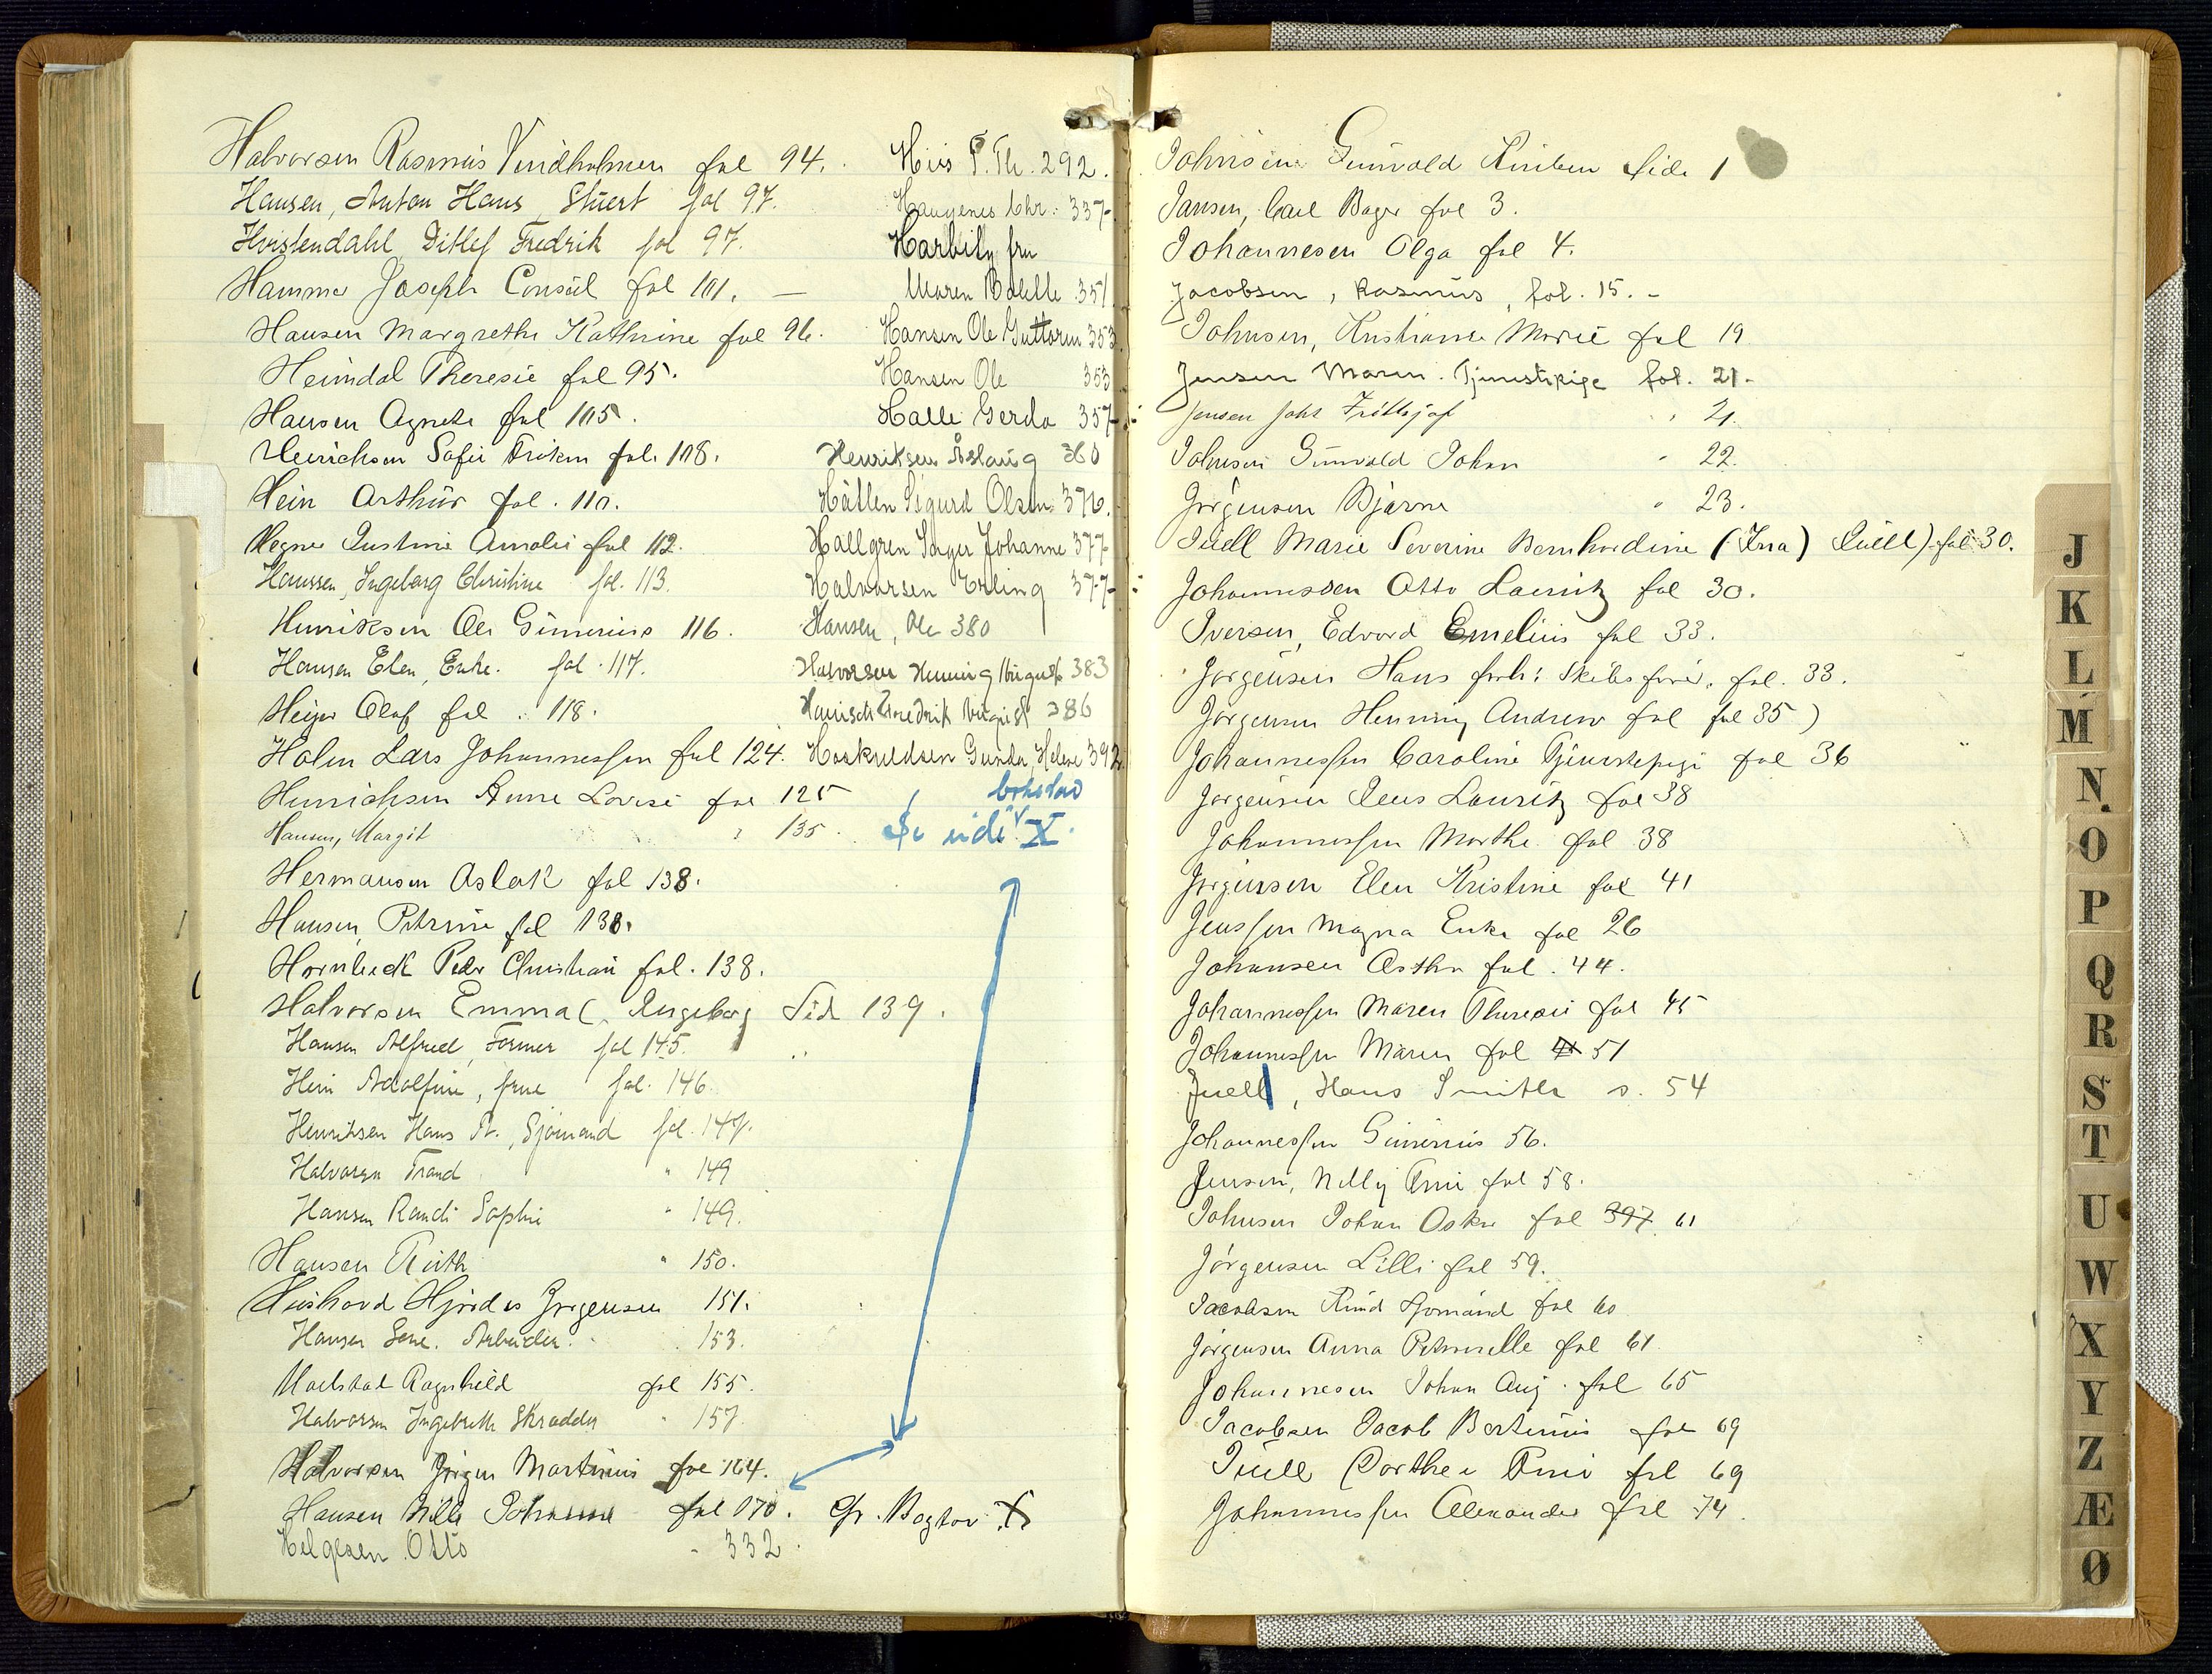 Halvorsen Rasmus Vindholmen fol 94.
Hansen, Anton Hans, Stuert fol 97.
Hvistendahl, Ditlef Fredrik fol 97.
Hammer Joseph Consul fol 101. —
Hansen Margrethe Kathrine fol 96.
Heimdal Theresie fol 95.
Hansen Agnete fol 105.
Henrichsen Sofie Frøken fol. 108.
Hein Arthur fol. 110.
Hegner Justine Amalie fol 112.
Hanssen, Ingeborg Christine fol. 113.
Henriksen Ole Gunerius 116.
Hansen Elen, Enke. fol. 117.
Heyer Olaf fol. 118.
Holm Lars Johannessen fol 124.
Henrichsen Anne Lovise fol 125
Hansen, Margit " 135.
Hermansen Aslak fol 138.
Hansen Petrine fol 138.
Hornbeck Peder Christian fol. 138.
Halvorsen Emma (Ingeborg Sid 139.
Hansen Alfred, Former fol 145.
Hein Adolfine, frue fol. 146.
Henriksen Hans A., Sjømand fol. 147.
Halvorsen Trand " 149
Hansen Randi Sophie " 149.
Hansen Ruth " 150.
Hushovd Hjørdis Jørgensen 151.
Hansen Lene. Arbeider. 153.
Ragnhild fol 155.
Halvorsen Ingebreth Skrædder " 157.
Halvorsen Jørgen Martinius fol 164.
Hansen Nille Johanne fol 170. Cfr. Bogstav X
Helgesen Otto " 332.
Hiis P. Th. 292.
Haugenes Chr. 337
Harbitz fru
Maren Bolette 351
Hansen Ole Guttorm 353
Hansen Ole 353
Halle Gerda 357
Henriksen Åslaug 360
Hållen Sigurd Olsen 376.
Hallgren Inger Johanne 377
Halvorsen Erling 377
Hansen, Ole 380
Halvorsen Henning August 383
Hanisch Fredrik August 386
Hoskuldsen Gunda, Helene 392
bokstav
Se vide X.
Johnsen Gunvald Kniben Side 1
Jansen, Carl Bager fol 3.
Johannesen Olga fol 4.
Jacobsen, Rasmus, fol. 15. -
Johnsen, Kristiane Marie fol 19
Jensen Maren. Tjenestepige fol. 21.
Jensen Johs Frithjof " 21.
Johnsen Gunvald Johan " 22.
Jørgensen Bjarne " 23.
Juell Marie Severine Bernhardine (Fra) Juell) fol 30.
Johannessen Otto Lauritz fol 30.
Iversen, Edvard Emelius fol 33.
Jørgensen Hans forh: Skibsfører. fol. 33.
Jørgensen Henning Andrew fol fol 35)
Johannessen Caroline Tjenestepige fol 36
Jørgensen Jens Lauritz fol 38
Johannessen Marthe fol 38
Jørgensen Elen Kristine fol 41
Jenssen Magna Enke fol 26
Johansen Astha fol. 44.
Johannessen Maren Theresie fol 45
Johannessen Maren fol 51
Juell, Hans Smith s. 54
Johannessen Gunerius 56.
Jensen, Nelly Anne fol 58.
Johnsen Johan Oskar fol 397 61
Jørgensen Lilli fol 59.
Jacobsen Knud Sjømand fol 60
Jørgensen Anna Petronelle fol 61.
Johannesen Johan Aug. fol 65
Jacobsen Jacob Bertinius fol 69
Juell Dorthea Anne fol 69
Johannessen Alexander fol 74.
J
K
L
M
N
O
P
Q
R
S
T
U
W
X
Y
Z
Æ
Ø